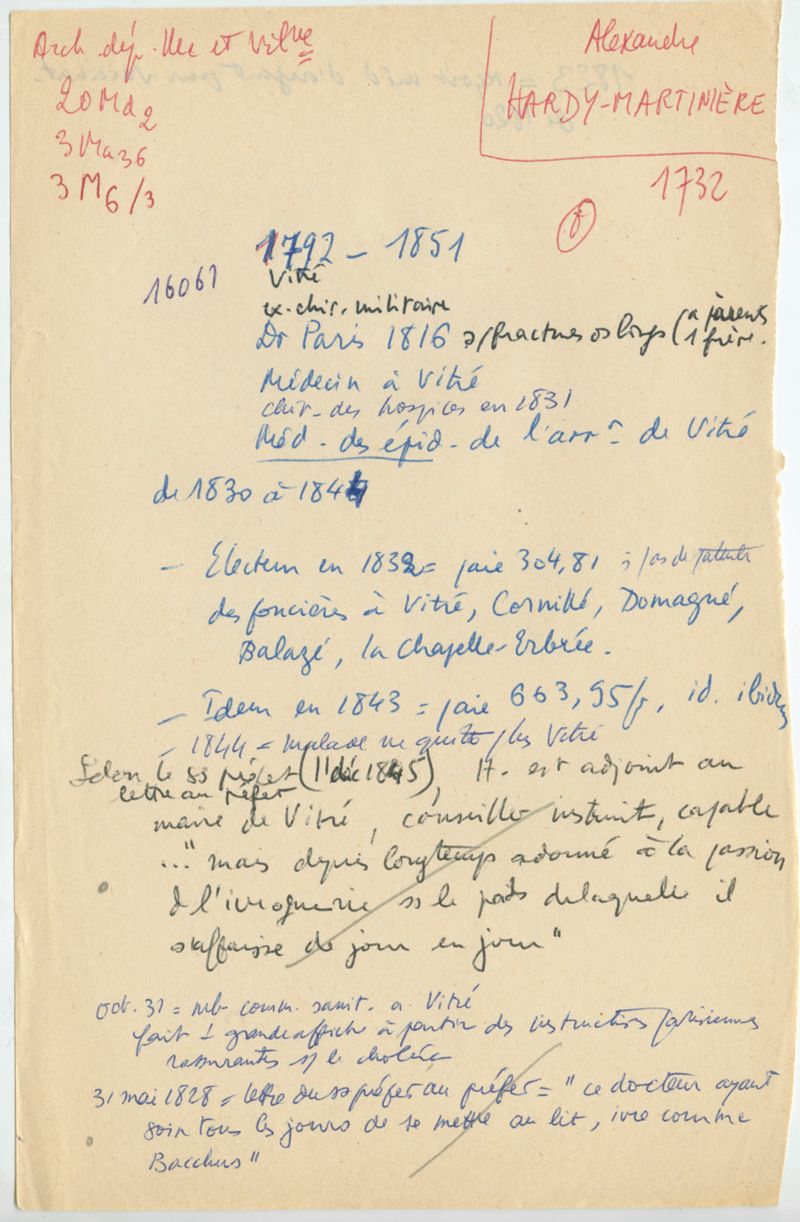 Arch. dép. Ille et Vilne
20 Md2
3 Ma 36
3 M6/3
Alexandre
HARDY-MARTINIÈRE
1732
1792 – 1851
16061
Vitré
ex-chir. militaire
Dr Paris 1816 s/fractures os longs (a parents
1 frère.
Médecin à Vitré
chir. des hospices en 1831
Méd. des épid. de l'arrt de Vitré
de 1830 à 1844
– Electeur en 1832 = paie 304,81 ; pas de patente
des foncières à Vitré, Cornillé, Domagné,
Balazé, la Chapelle-Erbrée.
– Idem en 1843 = paie 663,95 f, id. ibidem
– 1844 = malade ne quitte plus Vitré
Selon le ss préfet (11 déc 1845), H. est adjoint au
lettre au préfet
maire de Vitré, conseiller instruit, capable
..." mais depuis longtemps adonné à la passion
d l'ivrognerie ss le poids de laquelle il
s'affaisse de jour en jour"
oct. 31 = mb comm. sanit. a Vitré
fait 1 grande affiche à partir des instructions parisiennes
rassurantes s/ le choléra
31 mai 1828 = lettre du ss préfet au préfet = " ce docteur ayant
soin tous les jours de se mettre au lit, ivre comme
Bacchus"